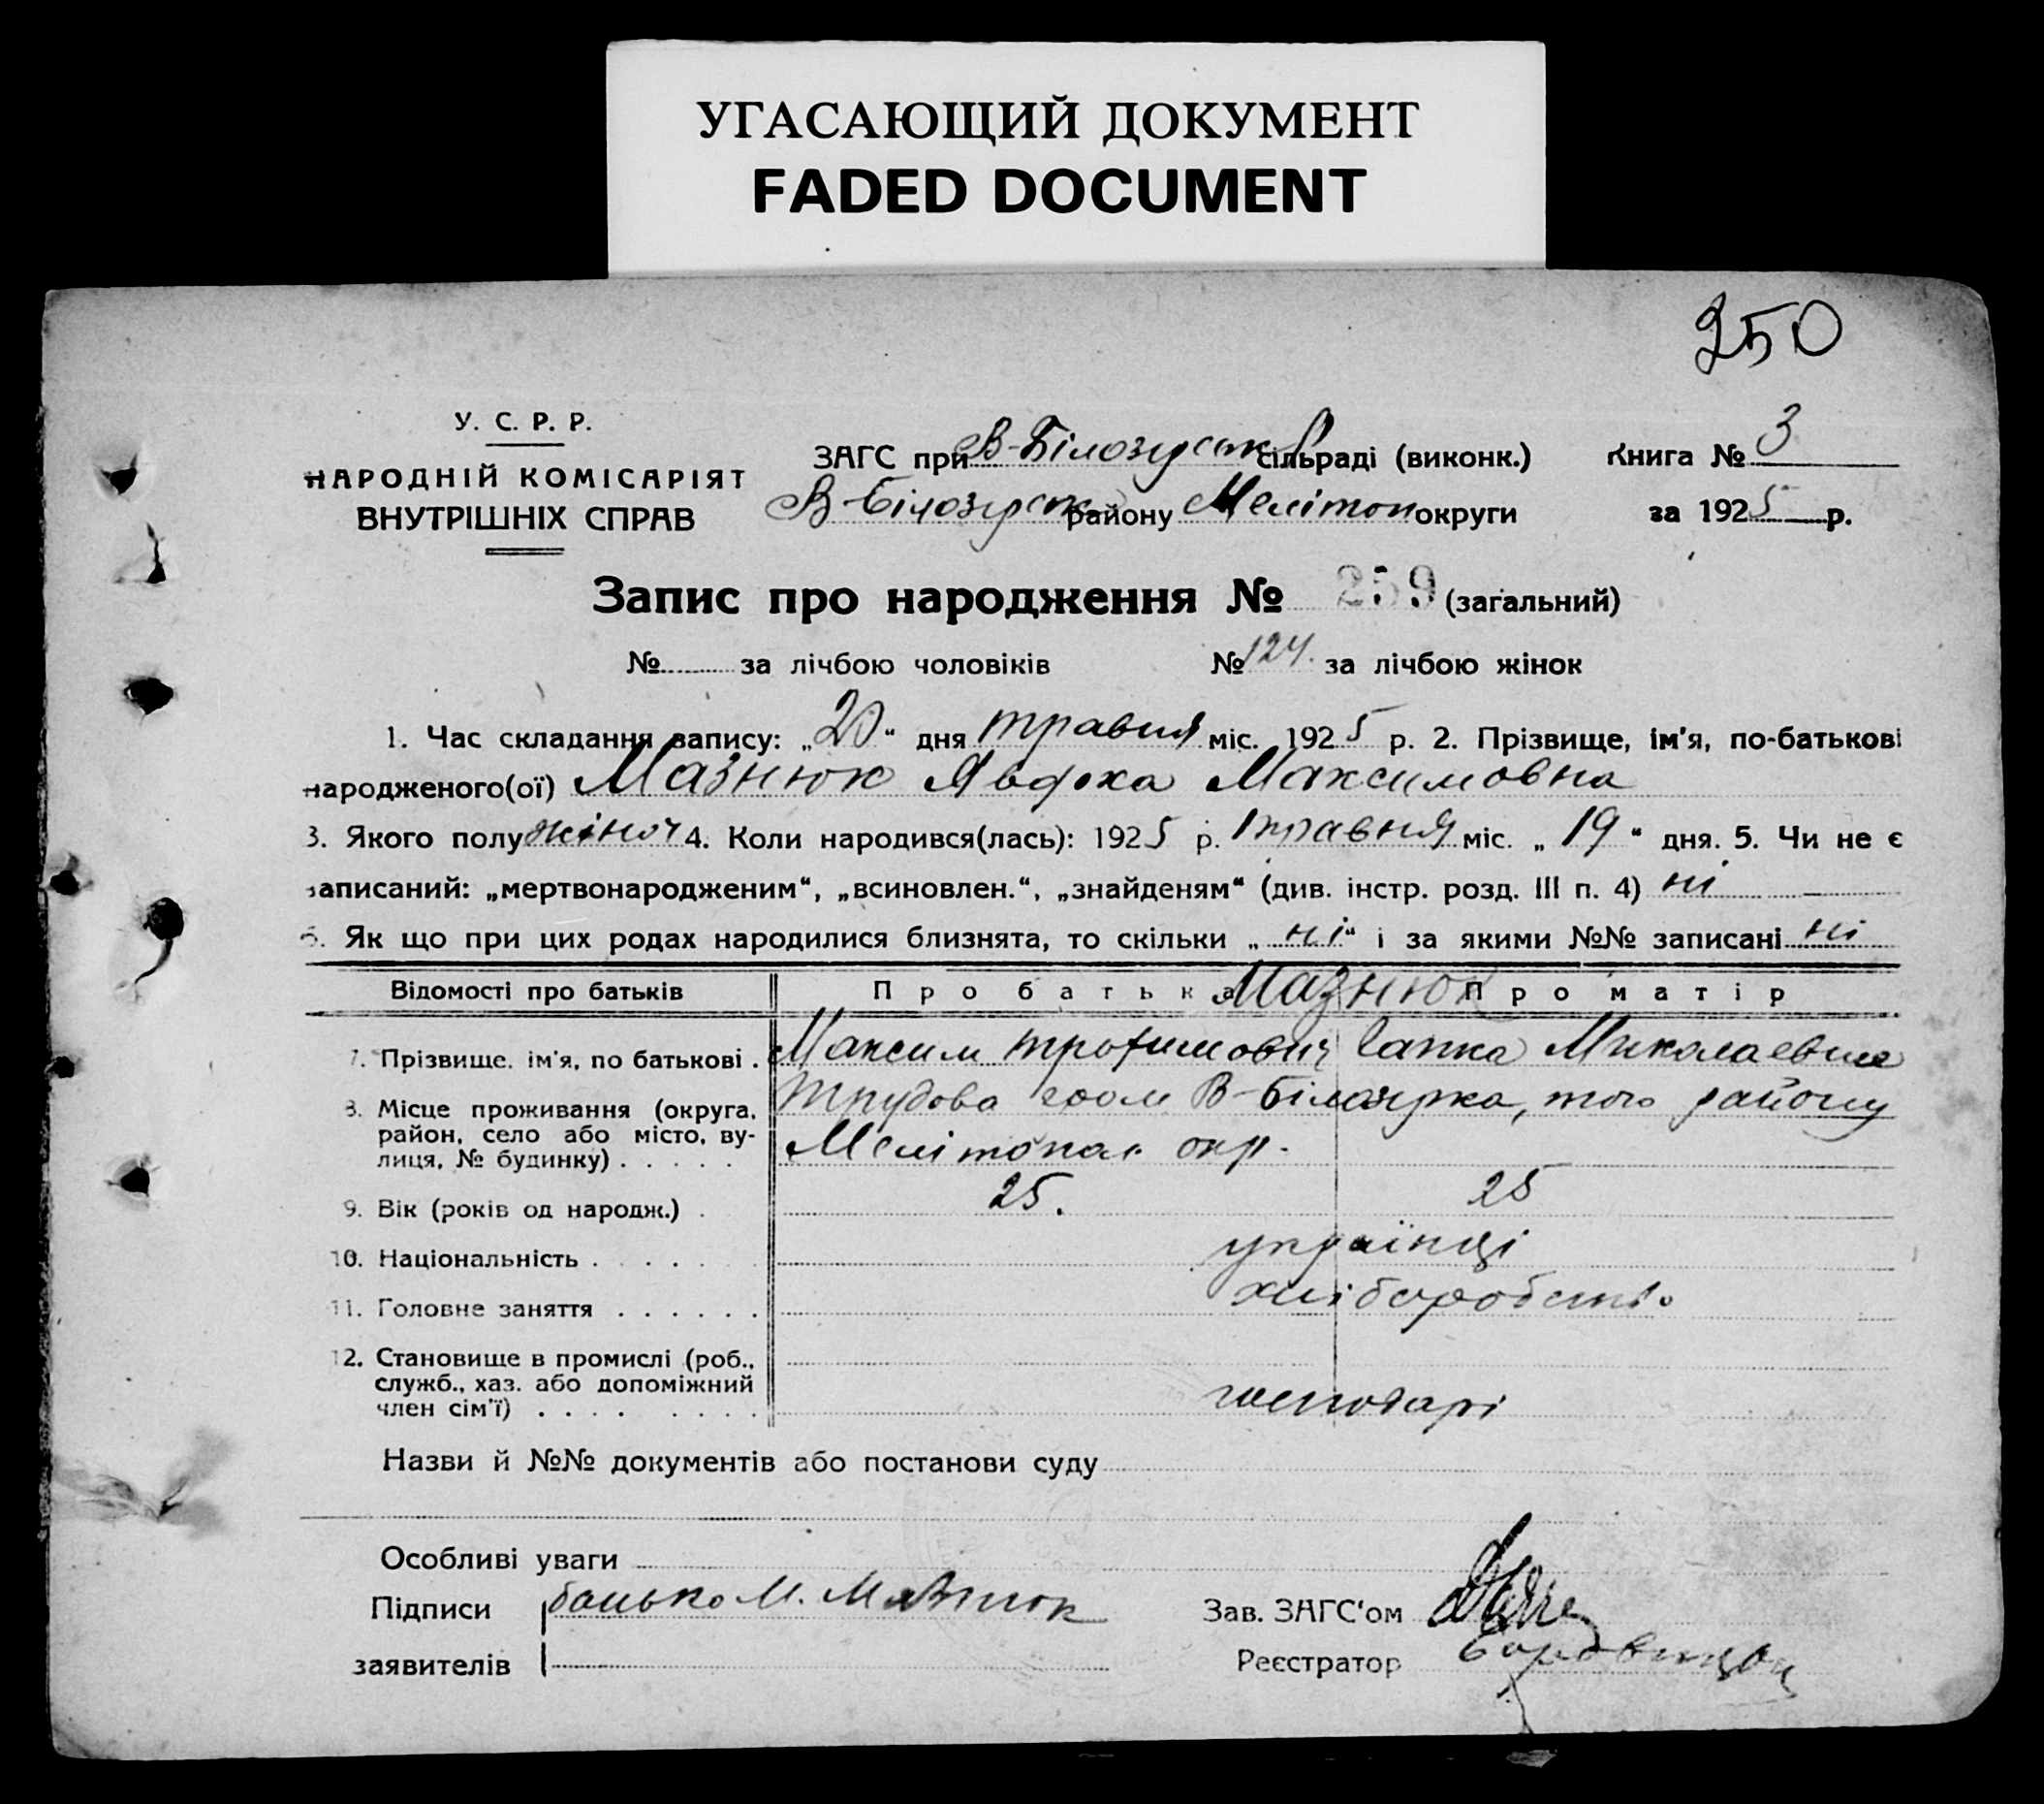 УГАСАЮЩИЙ ДОКУМЕНТ
FADED DOCUMENT
250
У. С. Р. Р.
НАРОДНІЙ КОМІСАРІЯТ
ВНУТРІШНІХ СПРАВ
ЗАГС при В-Білозерськ сільраді (виконк.)
В-Білозерськ району Мелітоп округи
Книга № 3
за 1925 р.
Запис про народження № 259 (загальний)
№ за лічбою чоловіків № 124. за лічбою жінок
1. Час складання запису: „20“ дня травня міс. 1925 р. 2. Прізвище, ім'я, по-батькові
народженого(ої) Мазнюк Явдоха Максимовна
3. Якого полу жіноч 4. Коли народився(лась): 1925 р. травня міс. „19“ дня. 5. Чи не є
записаний: „мертвонародженим“, „всиновлен.“, „знайденям“ (див. інстр. розд. III п. 4) ні
6. Як що при цих родах народилися близнята, то скільки „ні“ і за якими №№ записані ні
Відомості про батьків Про батька Мазнюк Про матір
7. Прізвище. ім'я, по батькові . Максим Трофимович Миколаевна
8. Місце проживання (округа, район, село або місто, вулиця, № будинку) . . . . . Трудова В-Білозярка, того району
Мелітопол. окр.
9. Вік (років од народж.) . 25. 25
10. Національність . . . . . українці
11. Головне заняття . . . . . . хліборобств.
12. Становище в промислі (роб.,
служб., хаз. або допоміжний
член сім'ї) . . . . . . . . господарі
Назви й №№ документів або постанови суду
Особливі уваги
Підписи батько М. Мазнюк
заявителів
Зав. ЗАГС'ом
Реєстратор